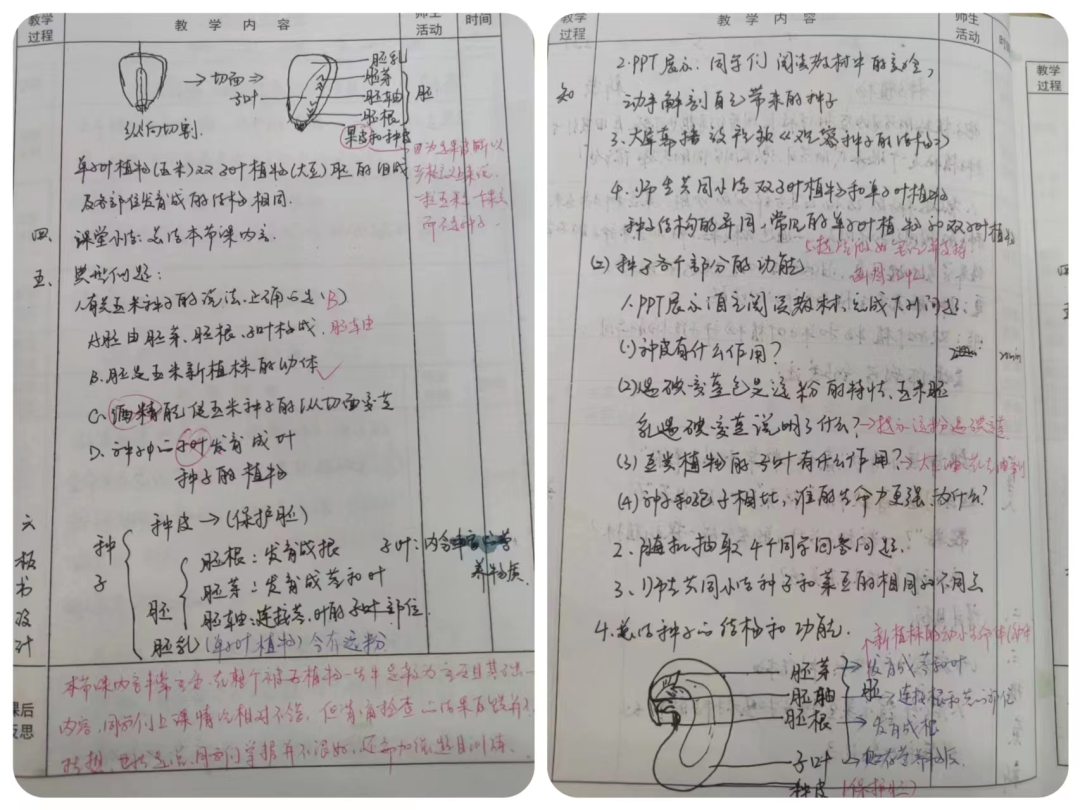 教学过程
教 学 内 容
师生活动
时间
→切面⇒
子叶
胚乳
胚芽
胚轴
胚根
胚
果皮和种皮
纵向切割.
单子叶植物(玉米)双子叶植物(大豆)胚的组成
及各部位发育成的结构相同.
四 课堂小结:总结本节课内容.
五. 典型例题:
1.有关玉米种子的说法,正确的是(B)
A.胚由胚芽、胚根、子叶构成. 胚轴
B.胚是玉米新植株的幼体 ✓
C.酒精能使玉米种子的纵切面变蓝
D.种子中的子叶发育成叶
种子的植物
六 板书设计
种子
种皮→(保护胚)
胚
胚根:发育成根
胚芽:发育成茎和叶
胚轴:连接茎、叶的子叶部位.
子叶:内含 营养物质.
胚乳(单子叶植物)含有淀粉
课后反思
本节课内容非常重要,在整个被子植物一生中是较为重要且基础
内容,同学们上课情况相对不错,但背诵检查的结果反馈并不
理想,也就是说,同学们掌握并不很好,还需加强题目训练.
教学过程
教 学 内 容
师生活动
时间
2.PPT展示,同学们阅读教材中的
知 动手解剖自己带来的种子
3.大屏幕播放视频《观察种子的结构》
4.师生共同小结双子叶植物和单子叶植物
种子结构的异同,常见的单子叶植物和双子叶植物
(2)种子各个部分的功能
1.PPT展示自主阅读教材,完成下列问题:
(1)种皮有什么作用?
min
(2)遇碘变蓝色是淀粉的特性,玉米胚
乳遇碘变蓝说明了什么?→提示淀粉遇碘变蓝
(3)豆类植物的子叶有什么作用?→大豆油
(4)种子和孢子相比,谁的生命力更强,为什么?
2.随机抽取4个同学回答问题.
3.师生共同小结种子和菜豆的相同和不同点
4.总结种子的结构和功能.
胚芽→发育成茎和叶
胚轴→连接根和茎的部位
胚根→发育成根
胚
子叶→贮存营养物质.
种皮(保护胚)
教学过程